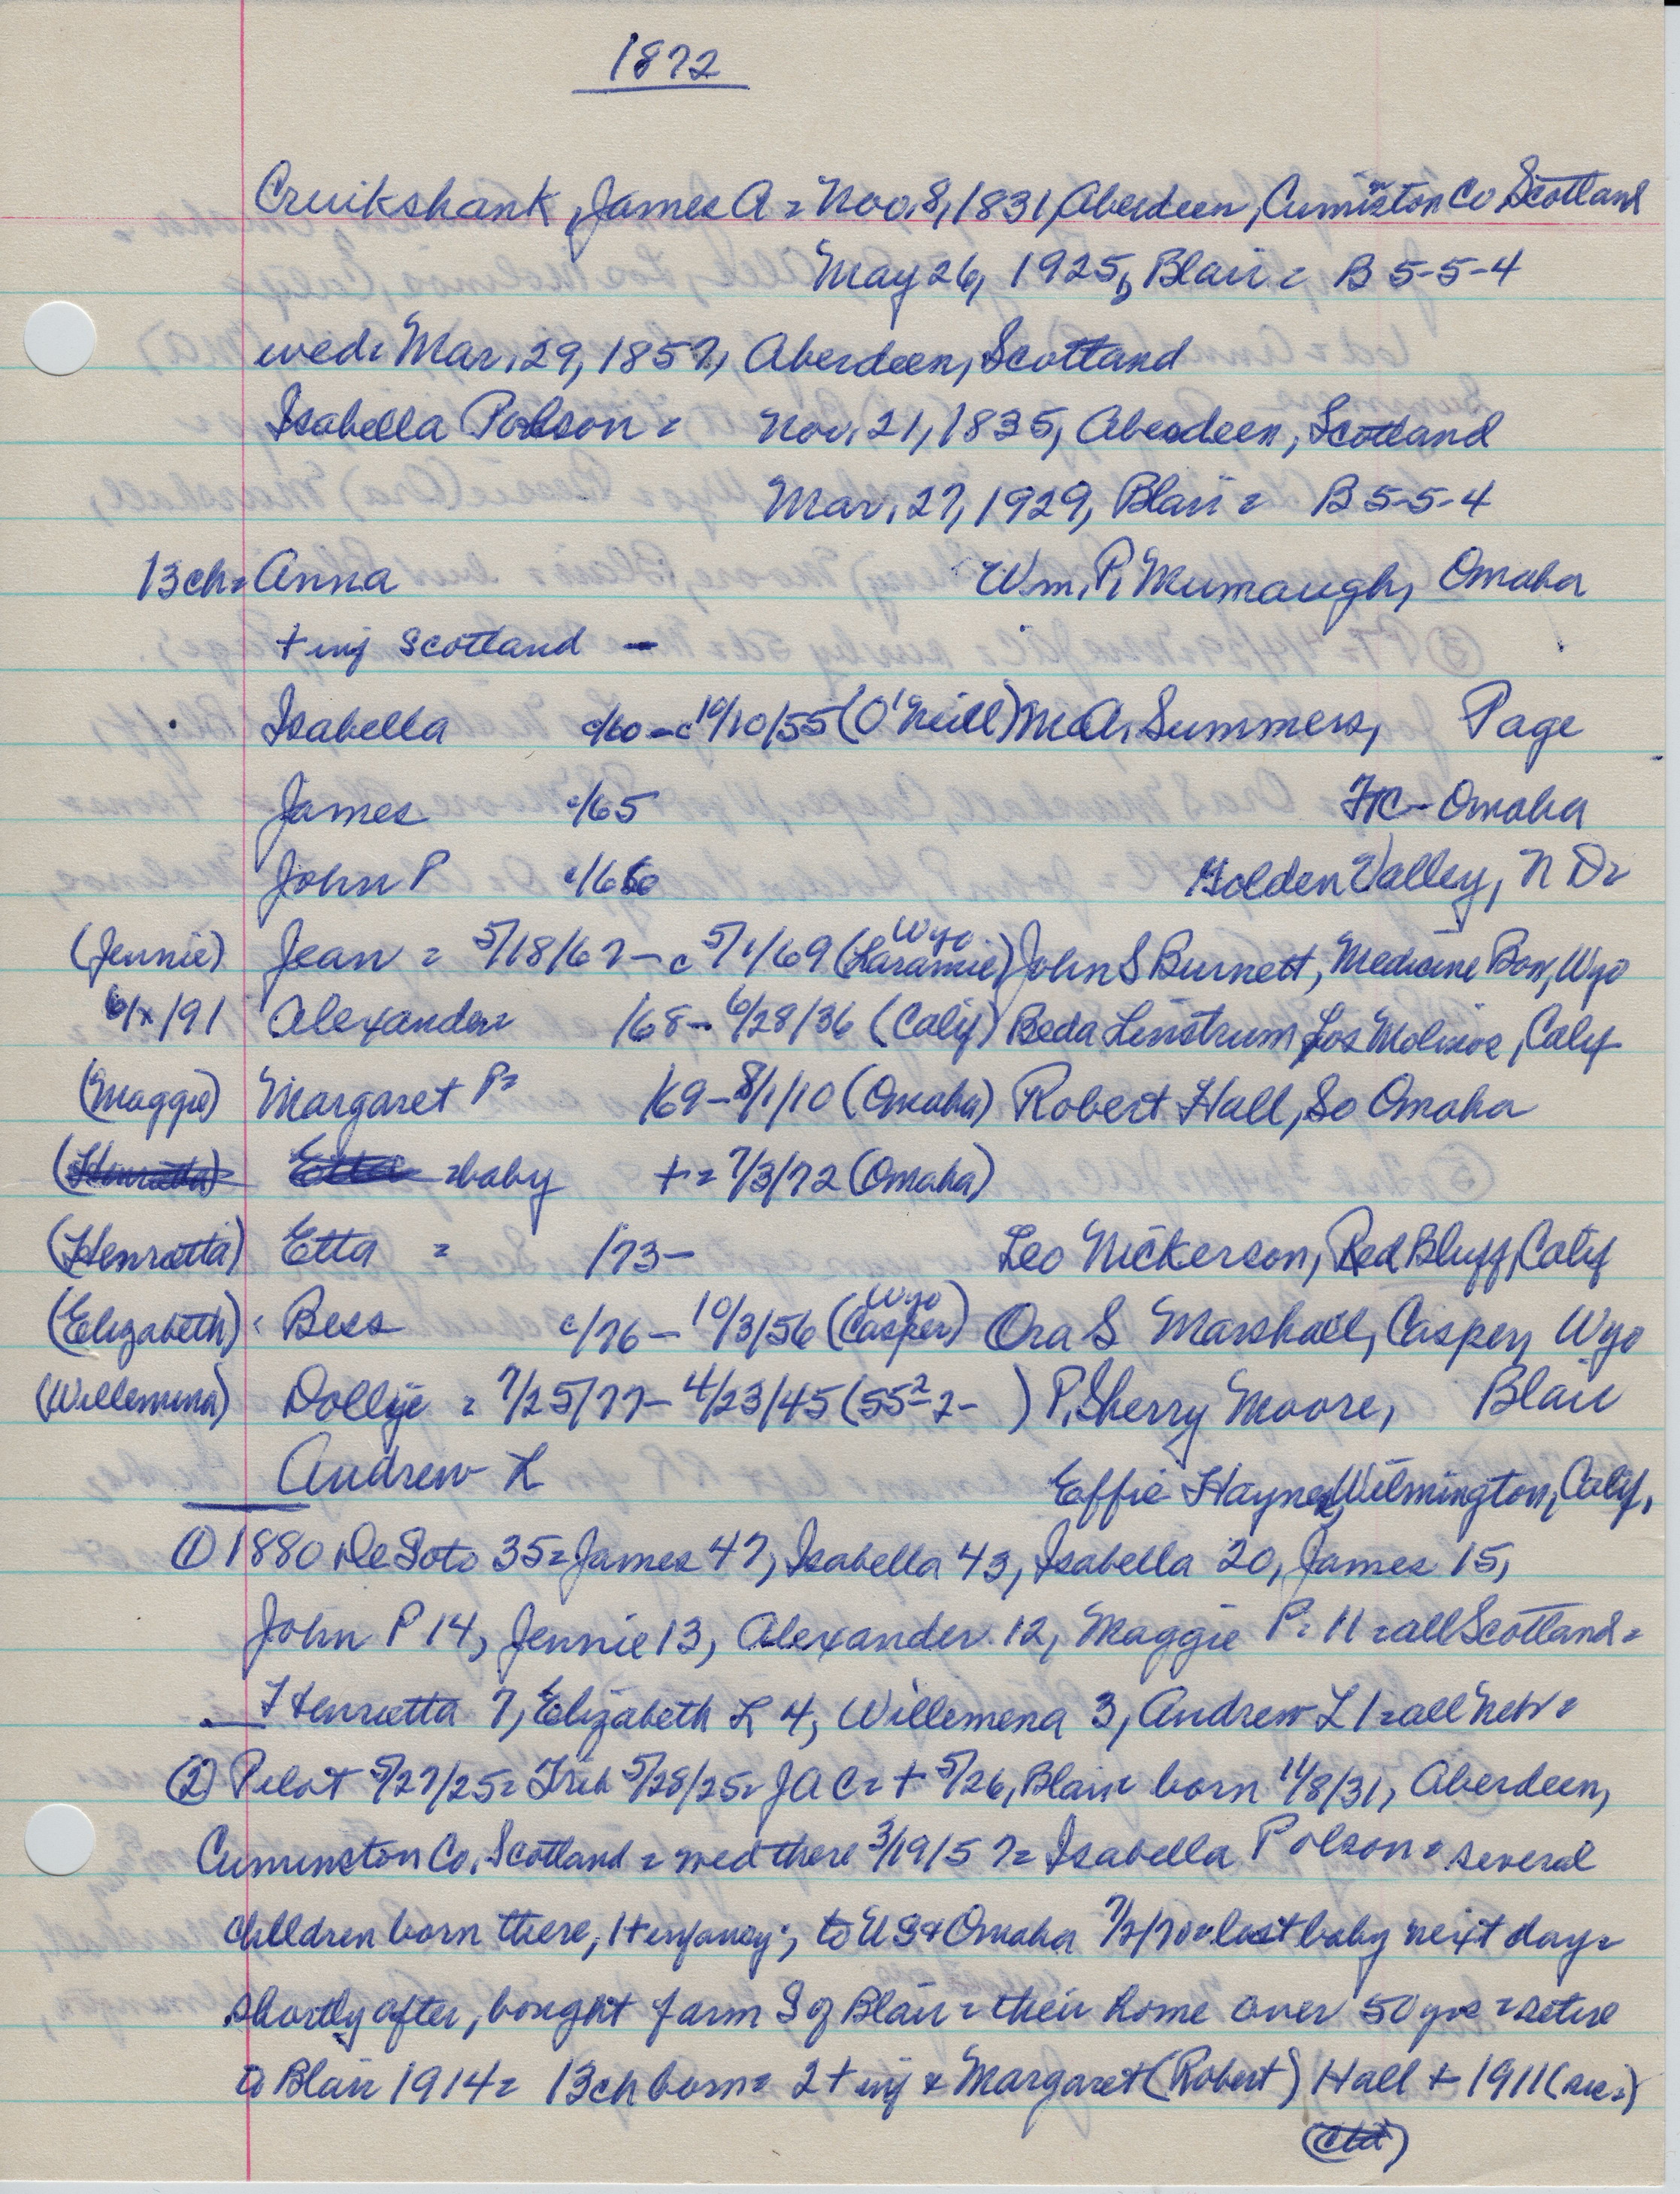 1872
Cruikshank, James A = Nov. 8, 1831, Aberdeen, Cuminston Co, Scotland
May 26, 1925, Blair = B 5-5-4
wed = Mar. 29, 1857, Aberdeen, Scotland
Isabella Polson = Nov. 21, 1835, Aberdeen, Scotland
Mar. 27, 1929, Blair = B 5-5-4
13 ch = Anna Wm. P. Mumaugh, Omaha
+ inf Scotland -
Isabella c/60 - c 10/10/55 (O'Neill) M.A. Summers, Page
James c/65 Omaha
John P c/66 Golden Valley, N D =
(Jennie) Jean = 5/18/67 - c 5/1/69 (Laramie Wyo) John S Burnett, Medicine Bow, Wyo
6/x/91 Alexander = /68 - 6/28/36 (Calif) Beda Linstrum Los Molinos, Calif
(Maggie) Margaret P = /69 - 8/1/10 (Omaha) Robert Hall, So Omaha
(Henrietta) Etta = baby + = 7/3/72 (Omaha)
(Henrietta) Etta = /73 - Leo Nickerson, Red Bluff, Calif
(Elizabeth) Bess c/76 - 10/3/56 (Casper Wyo) Ora S Marshall, Casper, Wyo
(Willemena) Dollie = 7/25/77 - 4/23/45 (55-2-2- ) P. Sherry Moore, Blair
Andrew L Effie Haynes, Wilmington, Calif.
① 1880 De Soto 35 = James 47, Isabella 43, Isabella 20, James 15,
John P 14, Jennie 13, Alexander 12, Maggie P = 11 = all Scotland =
Henrietta 7, Elizabeth L 4, Willemena 3, Andrew L 1 = all Neb =
② Pilot 5/27/25 = Trib 5/28/25 = J A C = + 5/26, Blair = born 11/8/31, Aberdeen,
Cuminston Co, Scotland = wed there 3/19/57 = Isabella Polson = several
children born there, 1 + infancy; to U S & Omaha 7/2/70 = lost baby next day =
shortly after, bought farm S of Blair = their home over 50 yrs = retire
to Blair 1914 = 13 ch born = 2 + inf & Margaret (Robert) Hall + 1911 (sic =)
(ctd)